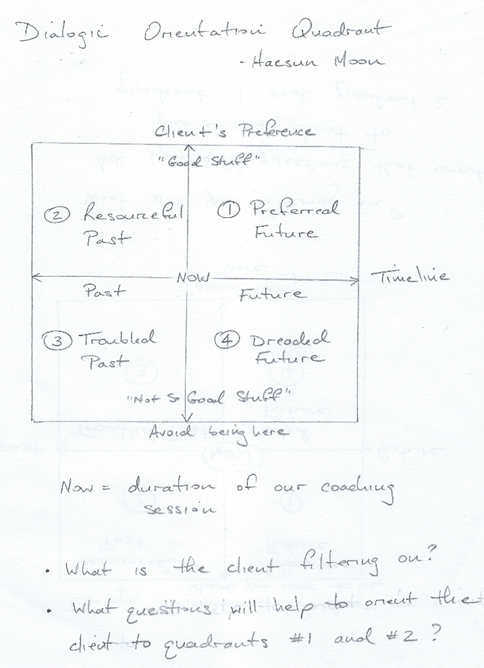 Dialogic Orientation Quadrant
- Haesun Moon
Client's Preference
"Good Stuff"
② Resourceful
Past
① Preferred
Future
NOW
Timeline
Past
Future
③ Troubled
Past
④ Dreaded
Future
"Not So Good Stuff"
Avoid being here
Now = duration of our coaching
session
• What is the client filtering on?
• What questions will help to orient the
client to quadrants #1 and #2?